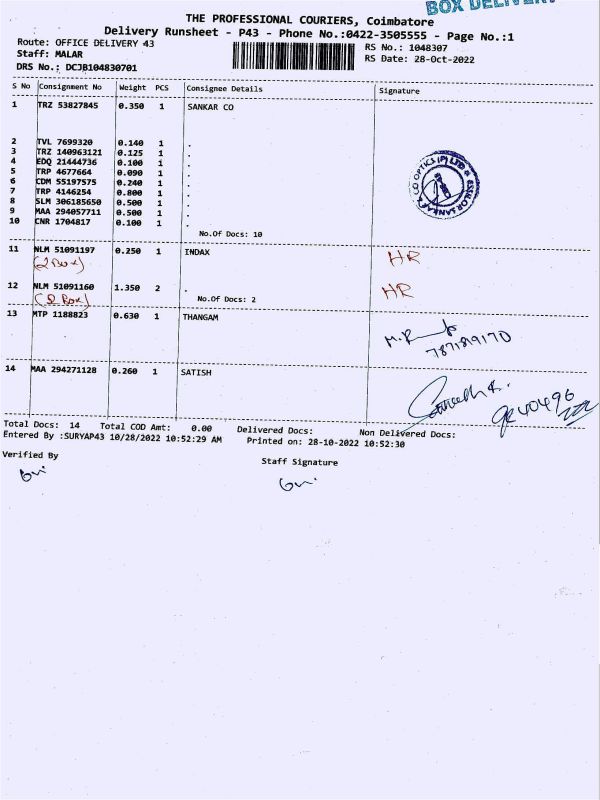 BOX DELIVERY
THE PROFESSIONAL COURIERS, Coimbatore
Delivery Runsheet - P43 - Phone No.:0422-3505555 - Page No.:1
Route: OFFICE DELIVERY 43
Staff: MALAR
DRS No.: DCJB104830701
RS No.: 1048307
RS Date: 28-Oct-2022
S No Consignment No Weight PCS Consignee Details Signature
1 TRZ 53827845 0.350 1 SANKAR CO
2 TVL 7699320 0.140 1 .
3 TRZ 140963121 0.125 1 .
4 EDQ 21444736 0.100 1 .
5 TRP 4677664 0.090 1 .
6 CDM 55197575 0.240 1 .
7 TRP 4146254 0.800 1 .
8 SLM 306185650 0.500 1 .
9 MAA 294057711 0.500 1 .
10 CNR 1704817 0.100 1 .
No.Of Docs: 10
11 NLM 51091197 0.250 1 INDAX HR
(2 Box)
12 NLM 51091160 1.350 2 . HR
(2 Box) No.Of Docs: 2
13 MTP 1188823 0.630 1 THANGAM
7871819170
14 MAA 294271128 0.260 1 SATISH
Total Docs: 14 Total COD Amt: 0.00 Delivered Docs: Non Delivered Docs:
Entered By :SURYAP43 10/28/2022 10:52:29 AM Printed on: 28-10-2022 10:52:30
Verified By
Staff Signature